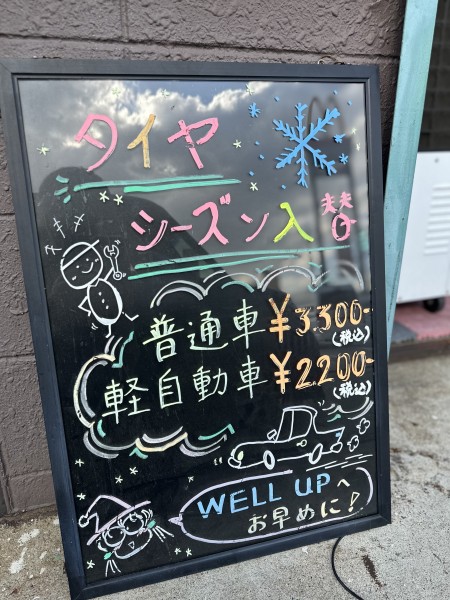 タイヤ
シーズン入替
普通車¥3,300-
(税込)
軽自動車¥2,200-
(税込)
WELL UPへ
お早めに!